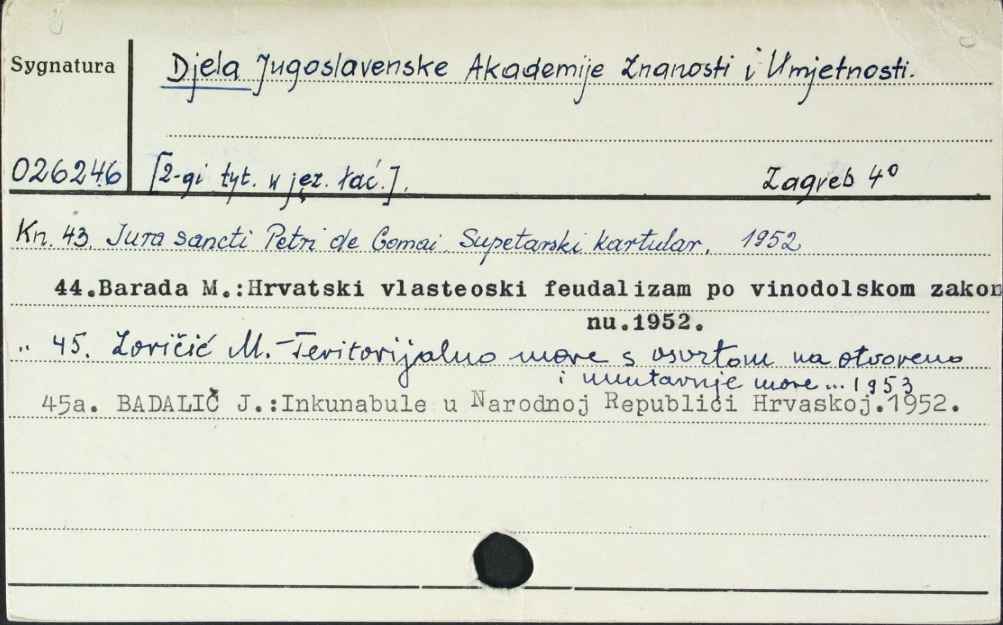 Sygnatura
Djela Jugoslavenske Akademije Znanosti i Umjetnosti.
026246 [2-gi tyt. w jęz. łać.]. Zagreb 4º
Kn. 43. Jura sancti Petri de Gomai Supetarski kartular. 1952
44.Barada M.:Hrvatski vlasteoski feudalizam po vinodolskom zakon
nu.1952.
„ 45. Zoričić M.-Teritorijalno more s osvrtom na otvoreno
i unutarnje more... 1953
45a. BADALIČ J.:Inkunabule u Narodnoj Republici Hrvaskoj.1952.